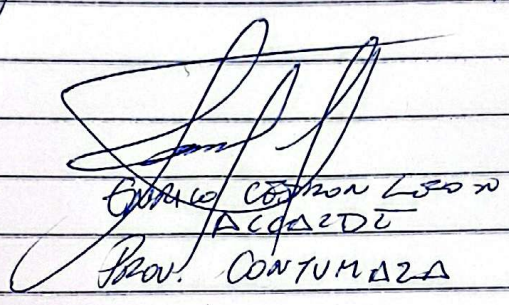 ENRICO CEDRON LEON
ALCALDE
PROV. CONTUMAZA